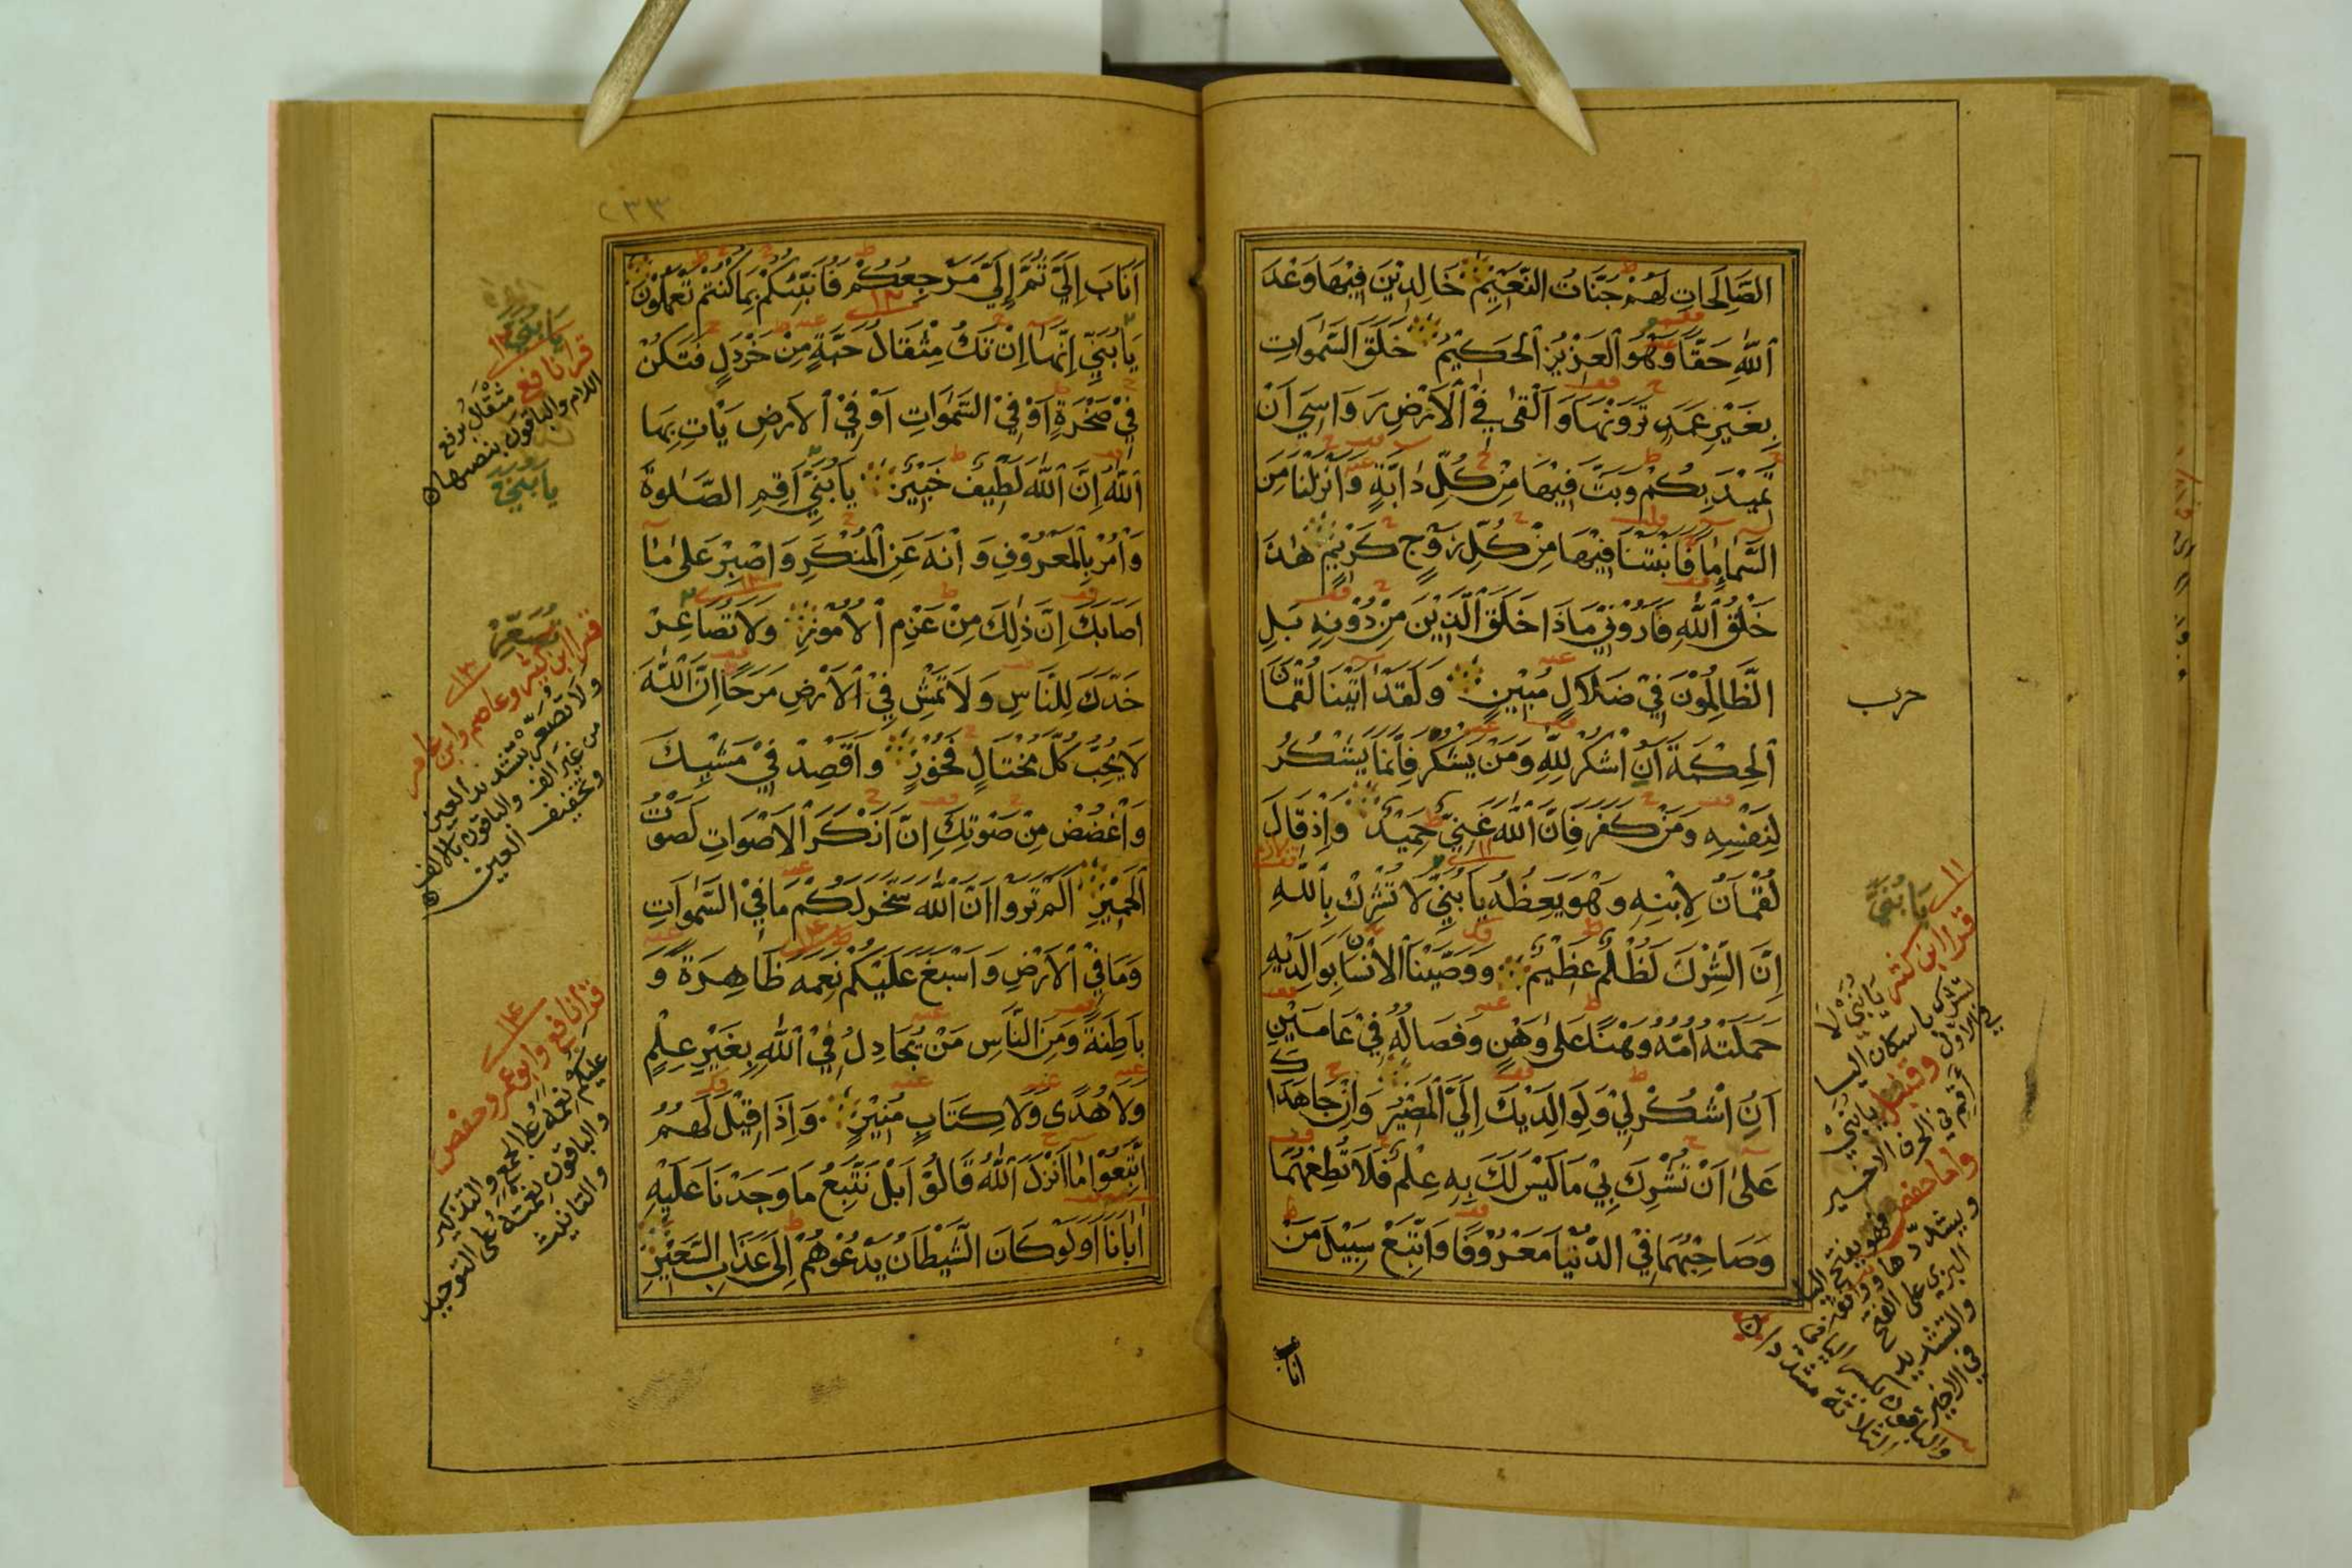 الصَّالِحَاتِ لَهُمْ جَنَّاتُ النَّعِيْمِ خَالِدِيْنَ فِيْهَا وَعْدَ
اللّٰهِ حَقًّا وَهُوَ الْعَزِيْزُ الْحَكِيْمُ خَلَقَ السَّمٰوَاتِ
بِغَيْرِ عَمَدٍ تَرَوْنَهَا وَاَلْقٰى فِي الْاَرْضِ رَوَاسِيَ اَنْ
تَمِيْدَ بِكُمْ وَبَثَّ فِيْهَا مِنْ كُلِّ دَابَّةٍ وَاَنْزَلْنَا مِنَ
السَّمَاءِ مَاءً فَاَنْبَتْنَا فِيْهَا مِنْ كُلِّ زَوْجٍ كَرِيْمٍ هٰذَا
خَلْقُ اللّٰهِ فَاَرُوْنِيْ مَاذَا خَلَقَ الَّذِيْنَ مِنْ دُوْنِهِ بَلِ
الظَّالِمُوْنَ فِيْ ضَلَالٍ مُبِيْنٍ وَلَقَدْ اٰتَيْنَا لُقْمَانَ
الْحِكْمَةَ اَنِ اشْكُرْ لِلّٰهِ وَمَنْ يَشْكُرْ فَاِنَّمَا يَشْكُرُ
لِنَفْسِهِ وَمَنْ كَفَرَ فَاِنَّ اللّٰهَ غَنِيٌّ حَمِيْدٌ وَاِذْ قَالَ
لُقْمَانُ لِابْنِهِ وَهُوَ يَعِظُهُ يَا بُنَيَّ لَا تُشْرِكْ بِاللّٰهِ
اِنَّ الشِّرْكَ لَظُلْمٌ عَظِيْمٌ وَوَصَّيْنَا الْاِنْسَانَ بِوَالِدَيْهِ
حَمَلَتْهُ اُمُّهُ وَهْنًا عَلٰى وَهْنٍ وَفِصَالُهُ فِيْ عَامَيْنِ
اَنِ اشْكُرْ لِيْ وَلِوَالِدَيْكَ اِلَيَّ الْمَصِيْرُ وَاِنْ جَاهَدَاكَ
عَلٰى اَنْ تُشْرِكَ بِيْ مَا لَيْسَ لَكَ بِهِ عِلْمٌ فَلَا تُطِعْهُمَا
وَصَاحِبْهُمَا فِي الدُّنْيَا مَعْرُوْفًا وَاتَّبِعْ سَبِيْلَ مَنْ
اناب
حزب
١١
يَا بُنَيَّ
قرا ابن كثير يَا بُنَيْ لَا
تشرك باسكان اليا
في الاول وقنبل يا بني
اقم في الحرف الاخير
واما حفص فهو بفتح اليا
ويشددها ووافقه
البزي على الفتح
والتشديد في الاخير
والباقون بكسر اليا في
الثلاثة مشددا
٢٣٣
اَنَابَ اِلَيَّ ثُمَّ اِلَيَّ مَرْجِعُكُمْ فَاُنَبِّئُكُمْ بِمَا كُنْتُمْ تَعْمَلُوْنَ
يَا بُنَيِّ اِنَّهَا اِنْ تَكُ مِثْقَالُ حَبَّةٍ مِنْ خَرْدَلٍ فَتَكُنْ
فِيْ صَخْرَةٍ اَوْ فِي السَّمٰوَاتِ اَوْ فِي الْاَرْضِ يَاْتِ بِهَا
اللّٰهُ اِنَّ اللّٰهَ لَطِيْفٌ خَبِيْرٌ يَا بُنَيِّ اَقِمِ الصَّلٰوةَ
وَاْمُرْ بِالْمَعْرُوْفِ وَانْهَ عَنِ الْمُنْكَرِ وَاصْبِرْ عَلٰى مَا
اَصَابَكَ اِنَّ ذٰلِكَ مِنْ عَزْمِ الْاُمُوْرِ وَلَا تُصَاعِرْ
خَدَّكَ لِلنَّاسِ وَلَا تَمْشِ فِي الْاَرْضِ مَرَحًا اِنَّ اللّٰهَ
لَا يُحِبُّ كُلَّ مُخْتَالٍ فَخُوْرٍ وَاقْصِدْ فِيْ مَشْيِكَ
وَاغْضُضْ مِنْ صَوْتِكَ اِنَّ اَنْكَرَ الْاَصْوَاتِ لَصَوْتُ
الْحَمِيْرِ اَلَمْ تَرَوْا اَنَّ اللّٰهَ سَخَّرَ لَكُمْ مَا فِي السَّمٰوَاتِ
وَمَا فِي الْاَرْضِ وَاَسْبَغَ عَلَيْكُمْ نِعَمَهُ ظَاهِرَةً وَ
بَاطِنَةً وَمِنَ النَّاسِ مَنْ يُجَادِلُ فِي اللّٰهِ بِغَيْرِ عِلْمٍ
وَلَا هُدًى وَلَا كِتَابٍ مُنِيْرٍ وَاِذَا قِيْلَ لَهُمُ
اتَّبِعُوْا مَا اَنْزَلَ اللّٰهُ قَالُوْا بَلْ نَتَّبِعُ مَا وَجَدْنَا عَلَيْهِ
اٰبَاءَنَا اَوَلَوْ كَانَ الشَّيْطَانُ يَدْعُوْهُمْ اِلٰى عَذَابِ السَّعِيْرِ
يا بني
١٢
قرا نافع مثقال برفع
اللام والباقون بنصبها
يا بني
تُصَعِّرْ
١٣
قرا ابن كثير وعاصم وابن عامر
ولا تصعر بتشديد العين
من غير الف والباقون بالالف
وتخفيف العين
١٤
قرا نافع وابو عمرو وحفص
عليكم نعمه على الجمع والتذكير
والباقون نعمة على التوحيد
والتانيث